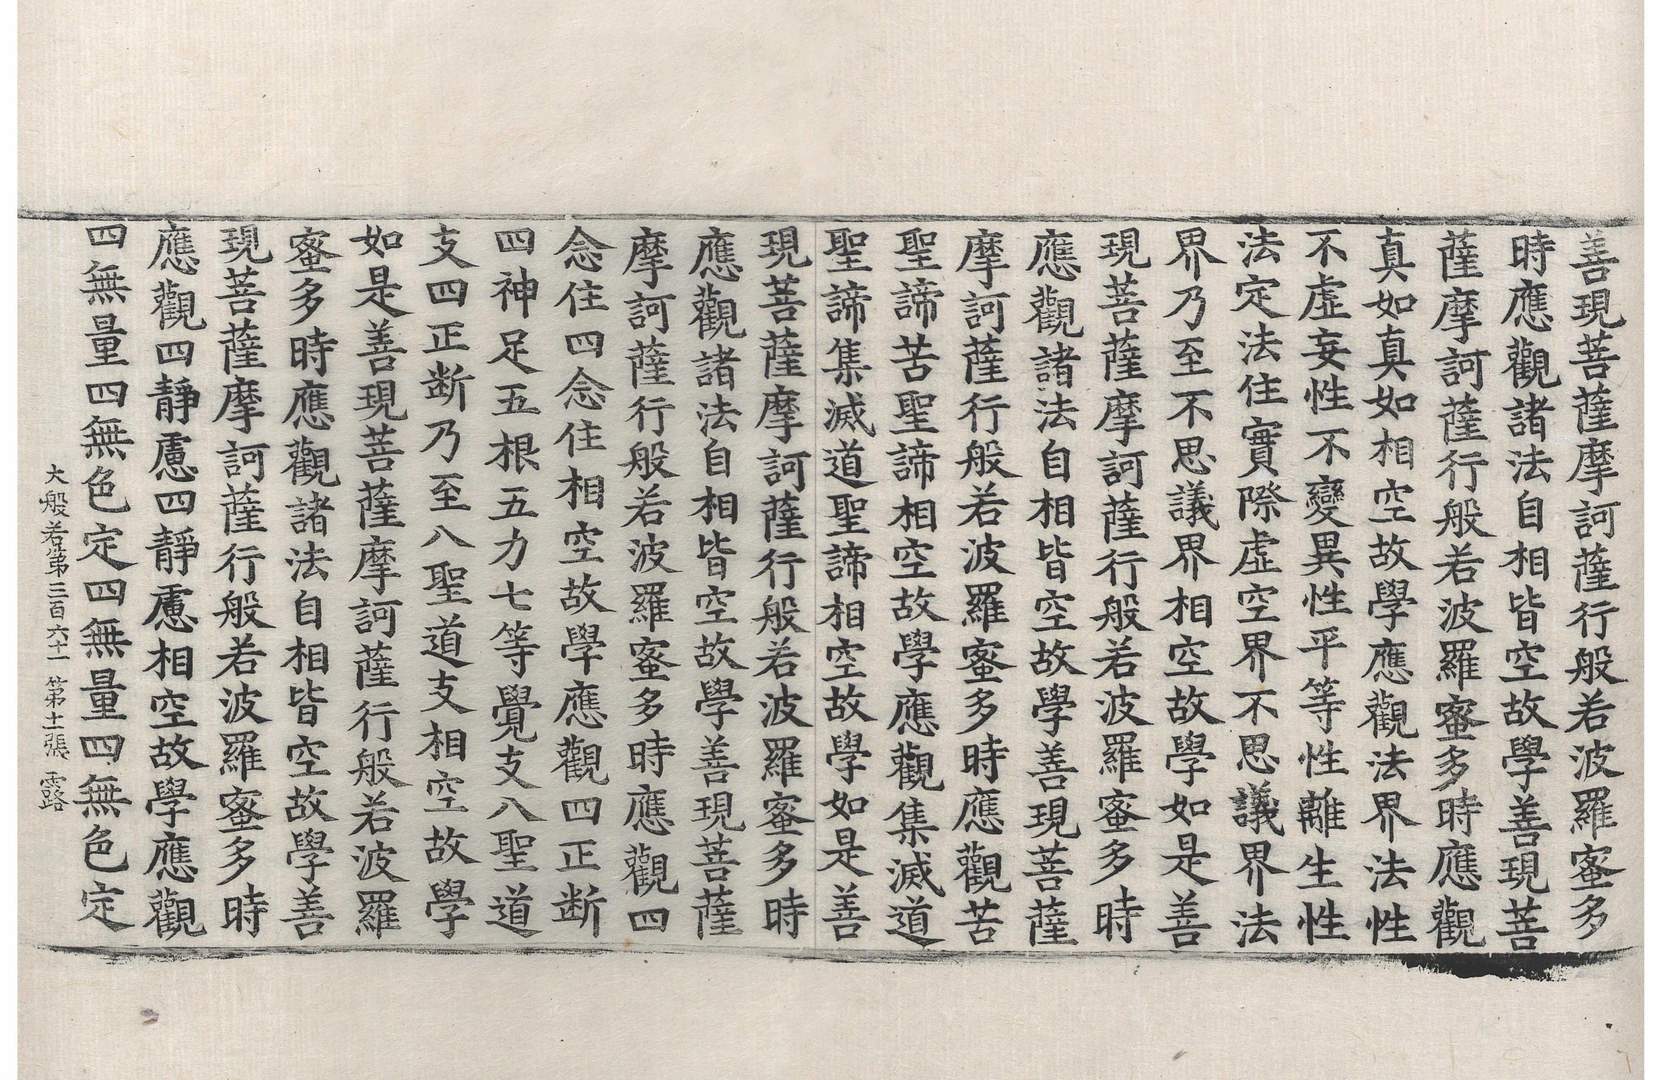 善現菩薩摩訶薩行般若波羅蜜多
時應觀諸法自相皆空故學善現菩
薩摩訶薩行般若波羅蜜多時應觀
真如真如相空故學應觀法界法性
不虛妄性不變異性平等性離生性
法定法住實際虛空界不思議界法
界乃至不思議界相空故學如是善
現菩薩摩訶薩行般若波羅蜜多時
應觀諸法自相皆空故學善現菩薩
摩訶薩行般若波羅蜜多時應觀苦
聖諦苦聖諦相空故學應觀集滅道
聖諦集滅道聖諦相空故學如是善
現菩薩摩訶薩行般若波羅蜜多時
應觀諸法自相皆空故學善現菩薩
摩訶薩行般若波羅蜜多時應觀四
念住四念住相空故學應觀四正断
四神足五根五力七等覺支八聖道
支四正断乃至八聖道支相空故學
如是善現菩薩摩訶薩行般若波羅
蜜多時應觀諸法自相皆空故學善
現菩薩摩訶薩行般若波羅蜜多時
應觀四靜慮四靜慮相空故學應觀
四無量四無色定四無量四無色定
大般若第三百六十一 第十一張 露